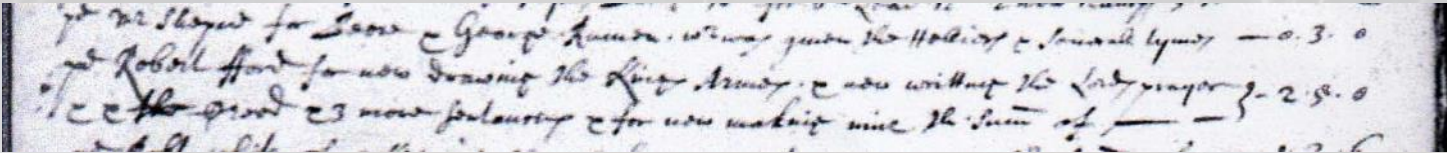 pd Mr Shepd for Beere & George Rumen wch was given the Helliers & severall tymes — 0. 3. 0
pd Robert fford for new drawing the Kings Armes & new writting the Lords prayer } - 2. 5. 0
& the Creed & 3 more sentances & for new making nine the Sum of